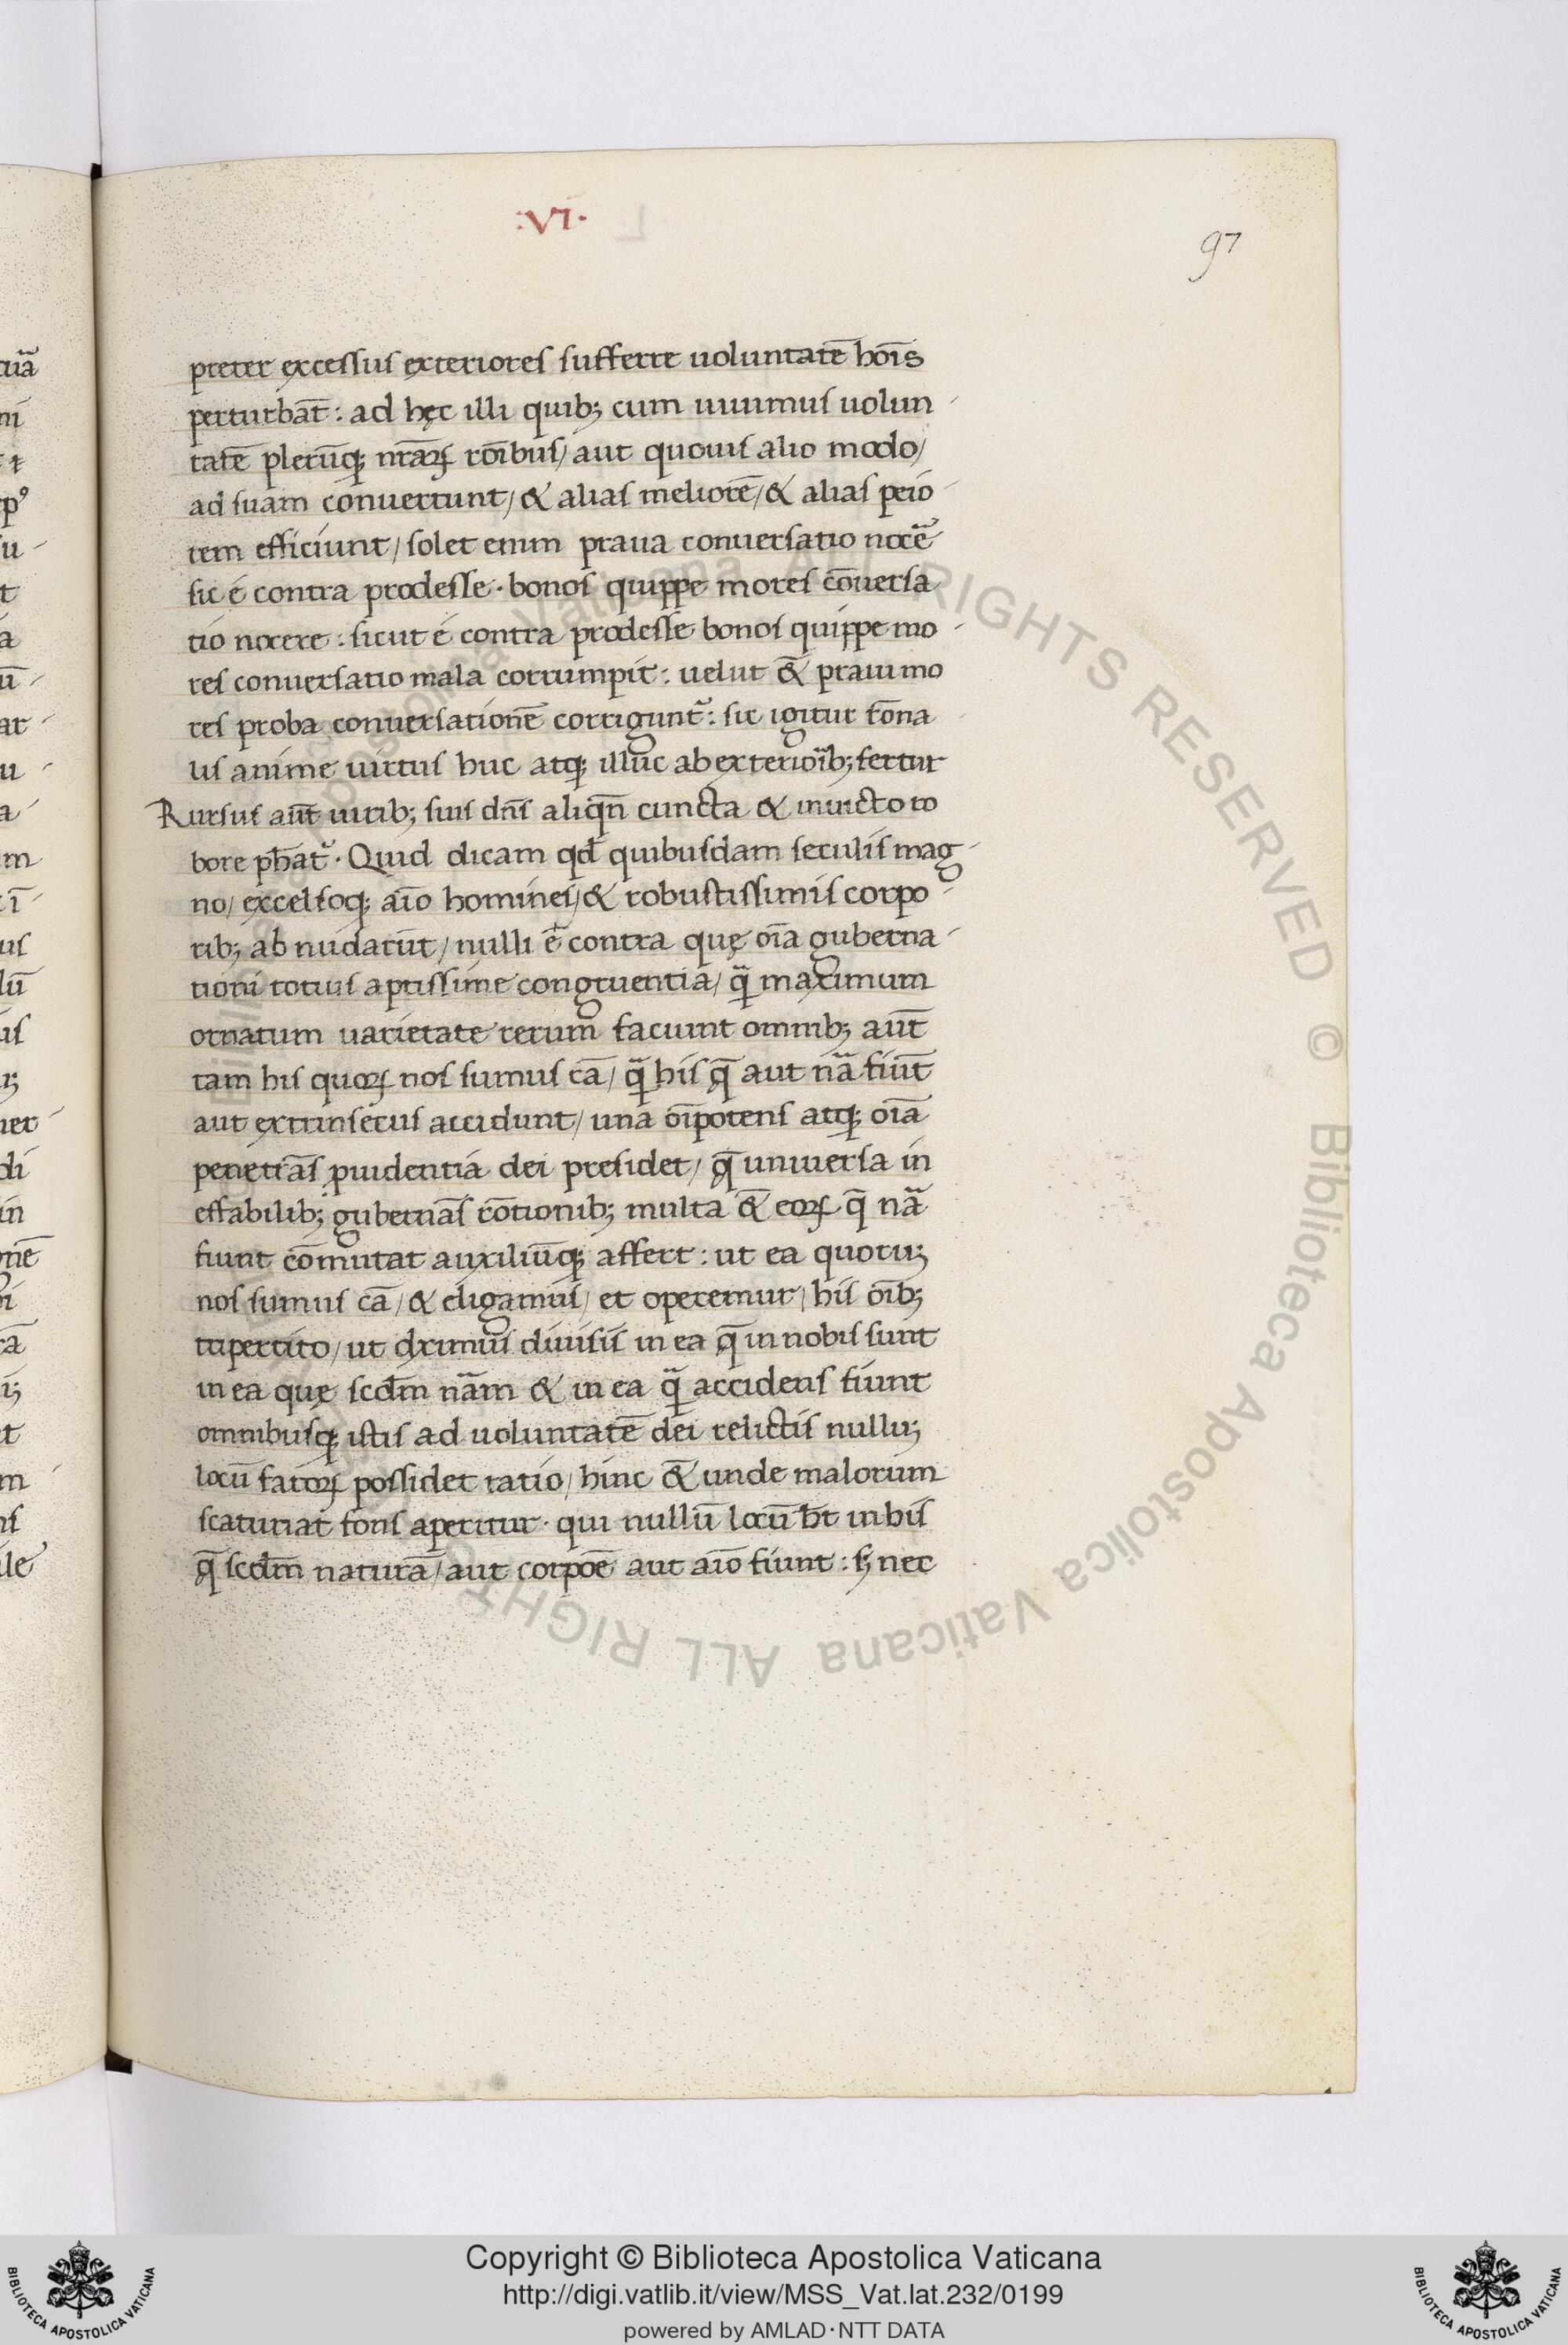 :VI·
97
preter excessus exteriores sufferre uoluntatē hoı̄s
perturbāt : ad hęc illi quib; cum uiuimus uolun-
tatē plerūq; nrāꝝ rōıbus / aut quouis alio modo /
ad suam conuertunt / & alias meliorē / & alias peio-
rem efficiunt / solet enim praua conuersatio nocē
sic é contra prodesse · bonos quippe mores cōuersa
tio nocere : sicut é contra prodesse bonos quippe mo-
res conuersatio mala corrumpit : uelut &̄ praui mo
res proba conuersationē corrigunt᷑ : sic igitur fōna
lis anime uirtus huc atq; illuc ab exterioı̄b; fertur
Rursus aūt uirib; suis dn̄s aliqn̄ cuncta & inuicto ro
bore ꝓhāt᷑ · Quid dicam qd̄ quibusdam seculis mag-
no / excelsoq; aı̄o homines / & robustissimis corpo-
rib; ab nudatūt / nulli ē contra quę oı̄a guberna-
tioni totius aptissime congruentia / q̄ maximum
ornatum uarietate rerum faciunt omnib; aūt
tam his quoꝝ nos sumus cā / q̄ his q̄ aut nā fiūt
aut extrinsecus accidunt / una oı̄potens atq; oı̄a
penetrās ꝓuidentia dei presidet / q̄ uniuersa in
effabilib; gubernās rōtionib; multa &̄ eoꝝ q̄ nā
fiunt cōmutat auxiliūq; affert : ut ea quoru;
nos sumus cā / & eligamus / et operemur / his oı̄b;
tripertito / ut dximus diuisis in ea q̄ in nobis sunt
in ea quę scdm̄ nām & in ea q̄ accidens fiunt
omnibusq; istis ad uoluntatē dei relictis nullu;
locū fatoꝝ possidet ratio / hinc &̄ unde malorum
scaturiat fons aperitur · qui nullū locū ht̄ in his
q̄ scdm̄ naturā / aut corpoē aut aı̄o fiunt : s; nec
Copyright © Biblioteca Apostolica Vaticana
http://digi.vatlib.it/view/MSS_Vat.lat.232/0199
powered by AMLAD·NTT DATA